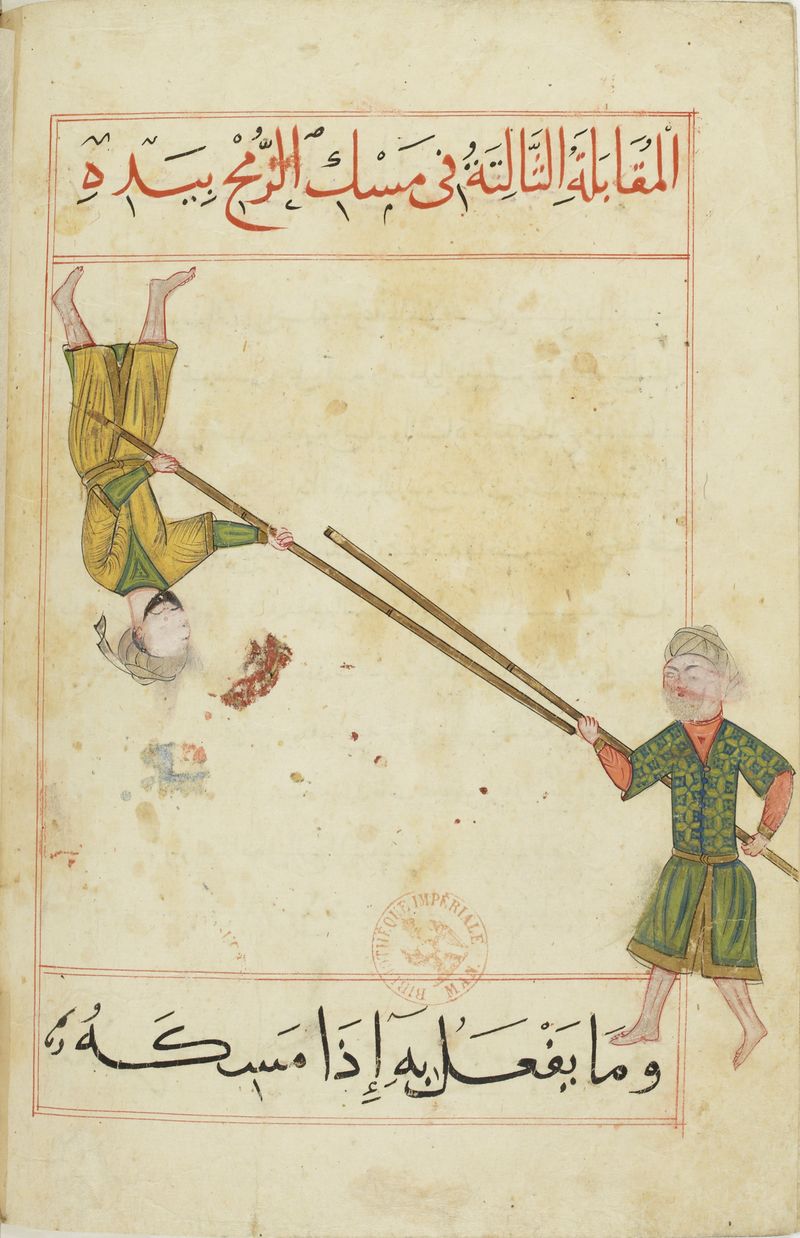 الْمُقَابَلَةُ الثَّالِثَةُ فى مَسْكِ الرُّمْحِ بِيَدِهِ
BIBLIOTHÈQUE IMPÉRIALE MAN.
وَمَا يَفْعَلُ بِهِ إِذَا مَسَكَهُ